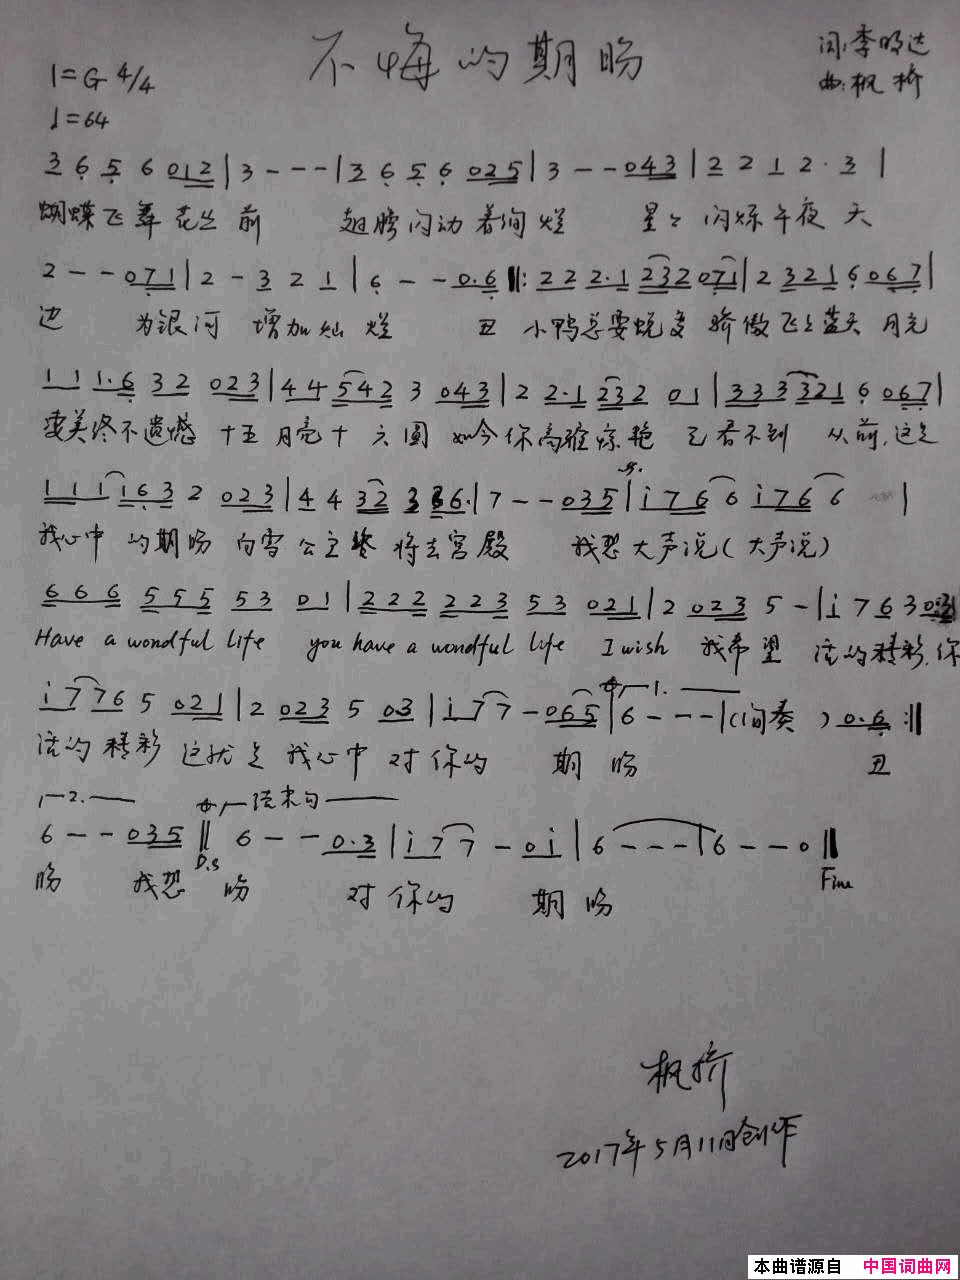 不悔的期盼
词:李明达
1=G 4/4
曲:枫桥
♩=64
3 6 5 6 012 | 3 - - - | 3 6 5 6 025 | 3 - - 043 | 2 2 1 2· 3 |
蝴蝶飞舞花丛前 翅膀闪动着绚烂 星星闪烁午夜天
2 - - 071 | 2 - 3 2 1 | 6 - - 0.6 ‖: 222 2.1 232 071 | 2 321 6 067 |
边 为银河增加灿烂 丑小鸭总要蜕变 骄傲飞上蓝天 月光
11 1.6 32 023 | 44 542 3 043 | 2 2.1 232 01 | 333 321 6 067 |
变美终不遗憾 十五月亮十六圆 如今你高雅惊艳 已看不到 从前,这是
111 163 2 023 | 4 4 32 3 36. | 7 - - 035 | i76 6 i76 6 |
我心中的期盼 白雪公主终将去宫殿 我想大声说(大声说)
666 555 53 01 | 222 223 53 021 | 2 023 5 - | i 7 6 3 0.3 |
Have a wondful life you have a wondful life I wish 我希望 活的精彩,你
i7 76 5 021 | 2 023 5 03 | i7 7 - 065 | 6 - - - | (间奏) 0.6 :‖
1.
活的精彩 这就是我心中对你的期盼 丑
2. 结束句
6 - - 035 ‖ 6 - - 0.3 | i7 7 - 0i | 6 - - - | 6 - - 0 ‖
D.S Fine
盼 我想盼 对你的期盼
枫桥
2017年5月11日创作
本曲谱源自 中国词曲网